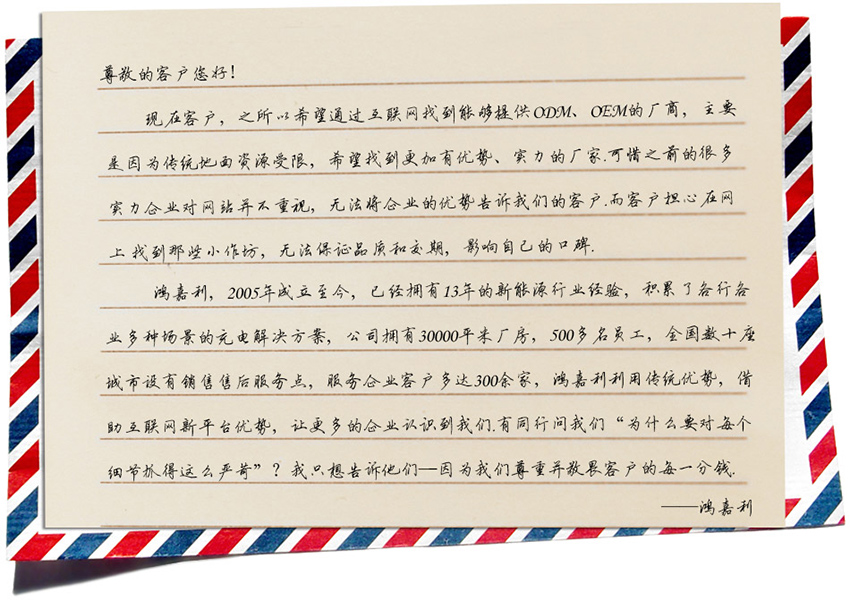 尊敬的客户您好!
现在客户，之所以希望通过互联网找到能够提供ODM、OEM的厂商，主要
是因为传统地面资源受限，希望找到更加有优势、实力的厂家.可惜之前的很多
实力企业对网站并不重视，无法将企业的优势告诉我们的客户.而客户担心在网
上找到那些小作坊，无法保证品质和交期，影响自己的口碑.
鸿嘉利，2005年成立至今，已经拥有13年的新能源行业经验，积累了各行各
业多种场景的充电解决方案，公司拥有30000平米厂房，500多名员工，全国数十座
城市设有销售售后服务点，服务企业客户多达300余家，鸿嘉利利用传统优势，借
助互联网新平台优势，让更多的企业认识到我们.有同行问我们“为什么要对每个
细节抓得这么严苛”？我只想告诉他们—因为我们尊重并敬畏客户的每一分钱.
——鸿嘉利